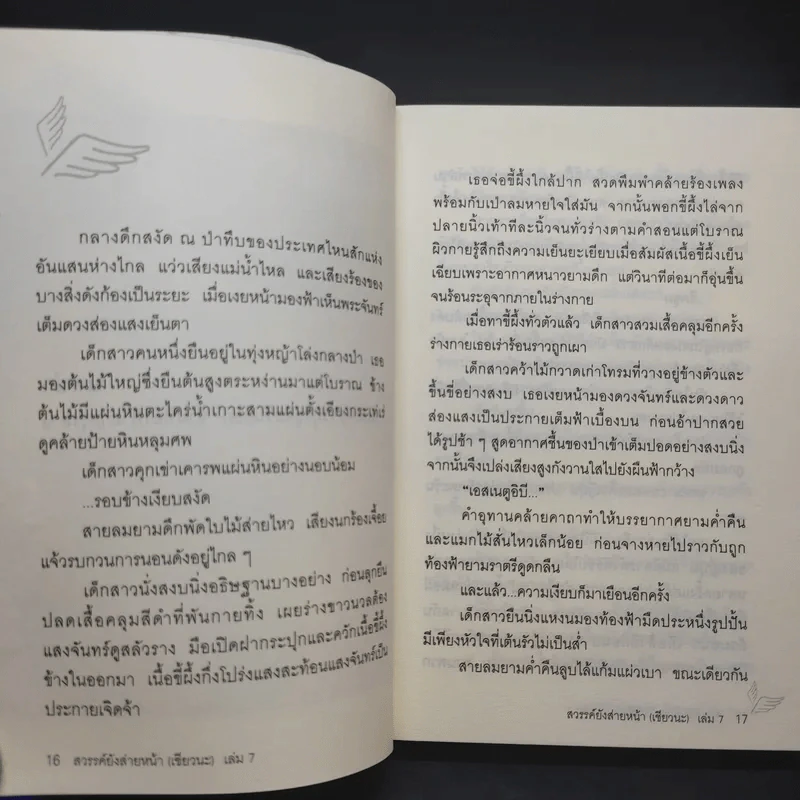 กลางดึกสงัด ณ ป่าทึบของประเทศไหนสักแห่ง
อันแสนห่างไกล แว่วเสียงแม่น้ำไหล และเสียงร้องของ
บางสิ่งดังก้องเป็นระยะ เมื่อเงยหน้ามองฟ้าเห็นพระจันทร์
เต็มดวงส่องแสงเย็นตา
เด็กสาวคนหนึ่งยืนอยู่ในทุ่งหญ้าโล่งกลางป่า เธอ
มองต้นไม้ใหญ่ซึ่งยืนต้นสูงตระหง่านมาแต่โบราณ ข้าง
ต้นไม้มีแผ่นหินตะไคร่น้ำเกาะสามแผ่นตั้งเอียงกระเท่เร่
ดูคล้ายป้ายหินหลุมศพ
เด็กสาวคุกเข่าเคารพแผ่นหินอย่างนอบน้อม
...รอบข้างเงียบสงัด
สายลมยามดึกพัดใบไม้ส่ายไหว เสียงนกร้องเจื้อย
แจ้วรบกวนการนอนดังอยู่ไกล ๆ
เด็กสาวนั่งสงบนิ่งอธิษฐานบางอย่าง ก่อนลุกยืน
ปลดเสื้อคลุมสีดำที่พันกายทิ้ง เผยร่างขาวนวลต้อง
แสงจันทร์ดูสลัวราง มือเปิดฝากระปุกและควักเนื้อขี้ผึ้ง
ข้างในออกมา เนื้อขี้ผึ้งกึ่งโปร่งแสงสะท้อนแสงจันทร์เป็น
ประกายเจิดจ้า
16 สวรรค์ยังส่ายหน้า (เชียวนะ) เล่ม 7
เธอจ่อขี้ผึ้งใกล้ปาก สวดพึมพำคล้ายร้องเพลง
พร้อมกับเป่าลมหายใจใส่มัน จากนั้นพอกขี้ผึ้งไล่จาก
ปลายนิ้วเท้าทีละนิ้วจนทั่วร่างตามคำสอนแต่โบราณ
ผิวกายรู้สึกถึงความเย็นยะเยียบเมื่อสัมผัสเนื้อขี้ผึ้งเย็น
เฉียบเพราะอากาศหนาวยามดึก แต่วินาทีต่อมาก็อุ่นขึ้น
จนร้อนระอุจากภายในร่างกาย
เมื่อทาขี้ผึ้งทั่วตัวแล้ว เด็กสาวสวมเสื้อคลุมอีกครั้ง
ร่างกายเธอเร่าร้อนราวถูกเผา
เด็กสาวคว้าไม้กวาดเก่าโทรมที่วางอยู่ข้างตัวและ
ขึ้นขี่อย่างสงบ เธอเงยหน้ามองดวงจันทร์และดวงดาว
ส่องแสงเป็นประกายเต็มฟ้าเบื้องบน ก่อนอ้าปากสวย
ได้รูปช้า ๆ สูดอากาศชื้นของป่าเข้าเต็มปอดอย่างสงบนิ่ง
จากนั้นจึงเปล่งเสียงสูงกังวานใสไปยังผืนฟ้ากว้าง
“เอสเนตูอิบี...”
คำอุทานคล้ายคาถาทำให้บรรยากาศยามค่ำคืน
และแมกไม้สั่นไหวเล็กน้อย ก่อนจางหายไปราวกับถูก
ท้องฟ้ายามราตรีดูดกลืน
และแล้ว...ความเงียบก็มาเยือนอีกครั้ง
เด็กสาวยืนนิ่งแหงนมองท้องฟ้ามืดประหนึ่งรูปปั้น
มีเพียงหัวใจที่เต้นรัวไม่เป็นส่ำ
สายลมยามค่ำคืนลูบไล้แก้มแผ่วเบา ขณะเดียวกัน
สวรรค์ยังส่ายหน้า (เชียวนะ) เล่ม 7 17